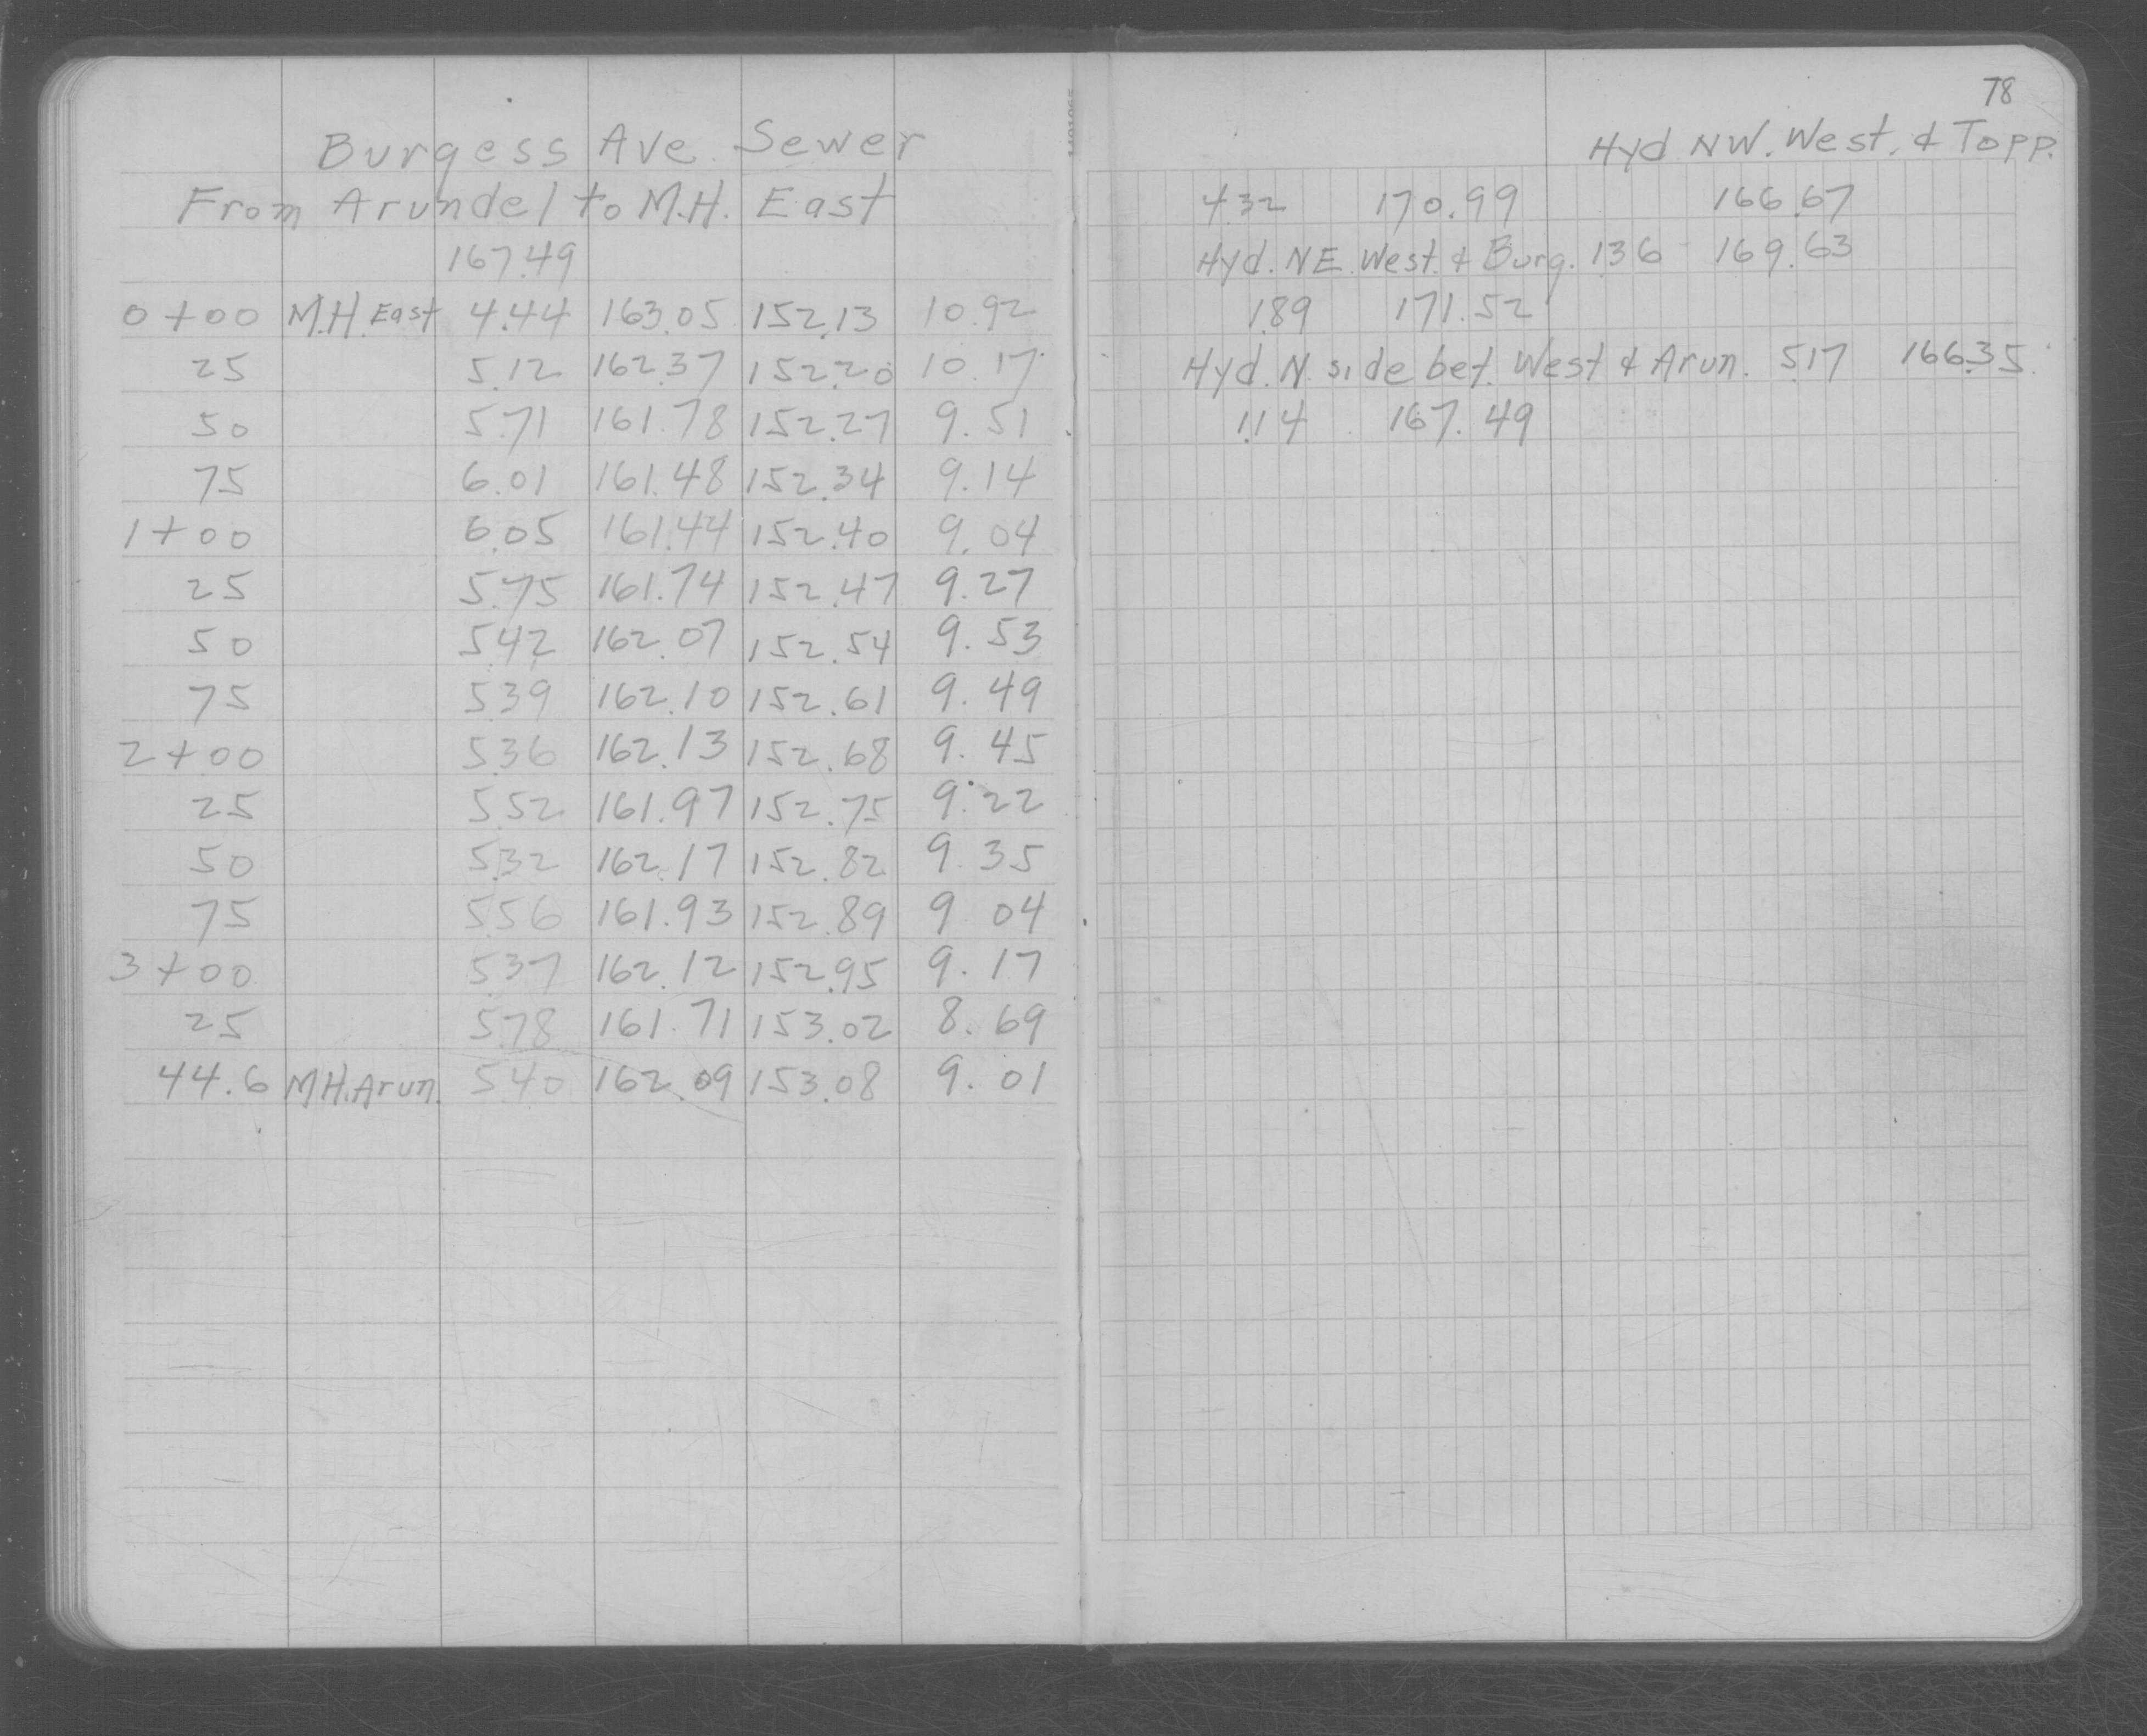 Burgess Ave. Sewer
From Arundel to M.H. East
167.49
0+00 M.H. East 4.44 163.05 152.13 10.92
25 5.12 162.37 152.20 10.17
50 5.71 161.78 152.27 9.51
75 6.01 161.48 152.34 9.14
1+00 6.05 161.44 152.40 9.04
25 5.75 161.74 152.47 9.27
50 5.42 162.07 152.54 9.53
75 5.39 162.10 152.61 9.49
2+00 5.36 162.13 152.68 9.45
25 5.52 161.97 152.75 9.22
50 5.32 162.17 152.82 9.35
75 5.56 161.93 152.89 9 04
3+00 5.37 162.12 152.95 9.17
25 5.78 161.71 153.02 8.69
44.6 M.H. Arun. 5.40 162.09 153.08 9.01
78
Hyd NW. West. & Topp.
4.32 170.99 166.67
Hyd. NE. West. & Burg. 1.36 169.63
1.89 171.52
Hyd. N. side bet. West & Arun. 5.17 166.35
1.14 167.49